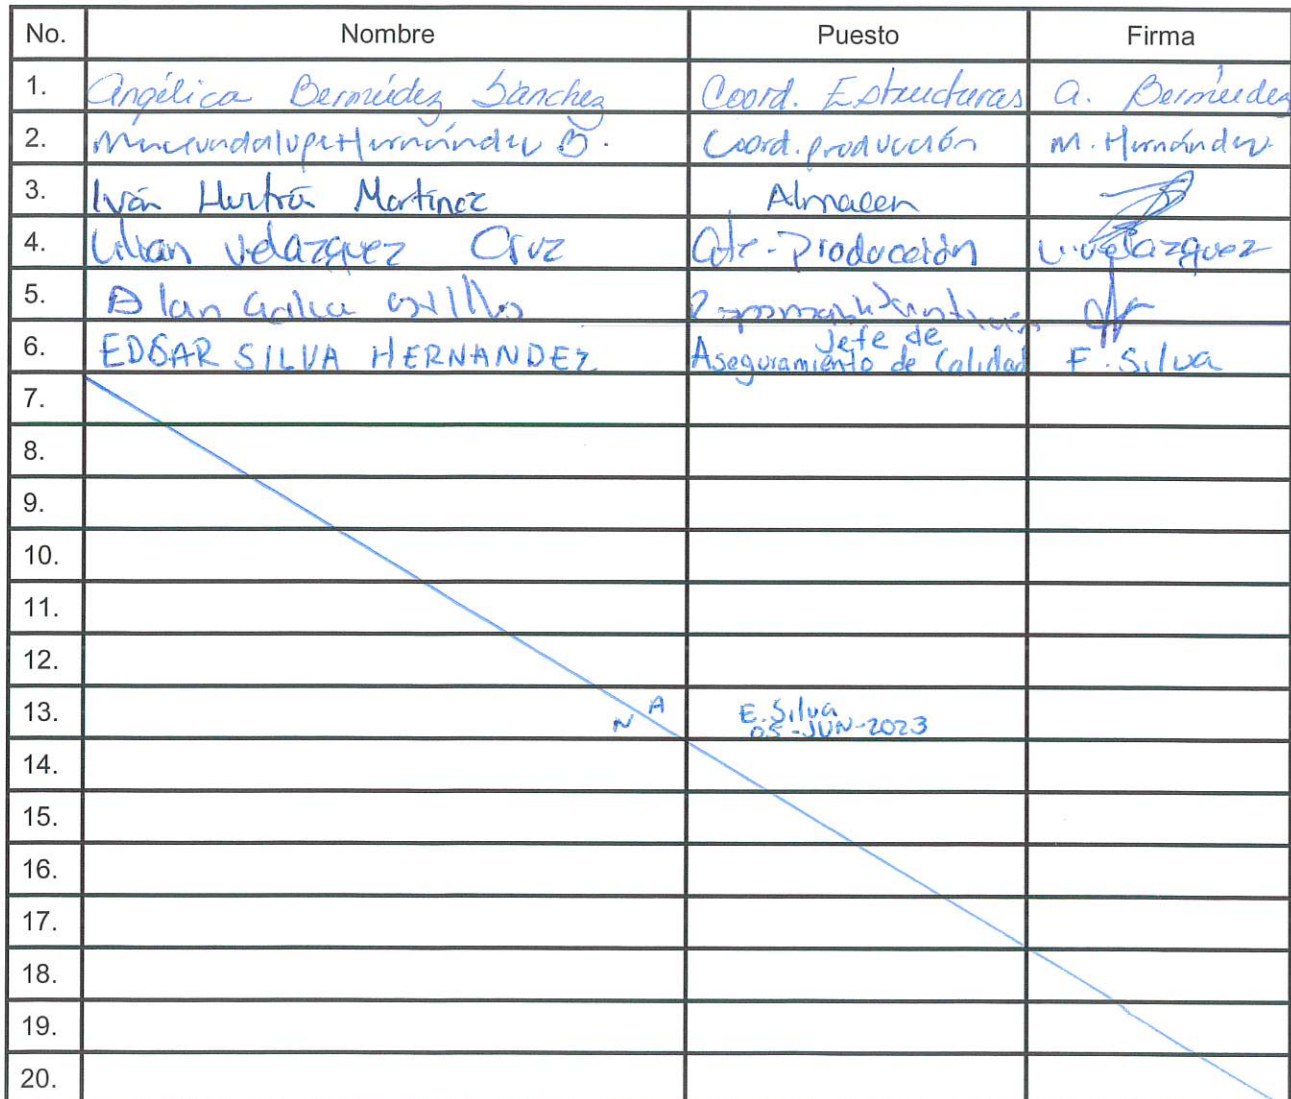 No. Nombre Puesto Firma
1. Angélica Bermúdez Sánchez Coord. Estructuras A. Bermúdez
2. Hernández B. Coord. producción M. Hernández
3. Iván Martínez Almacen
4. Lilian Velazquez Cruz Gte-Producción L. Velazquez
5. Alan
6. EDGAR SILVA HERNANDEZ Jefe de Aseguramiento de Calidad E. Silva
7.
8.
9.
10.
11.
12.
13. N A E. Silva
05-JUN-2023
14.
15.
16.
17.
18.
19.
20.